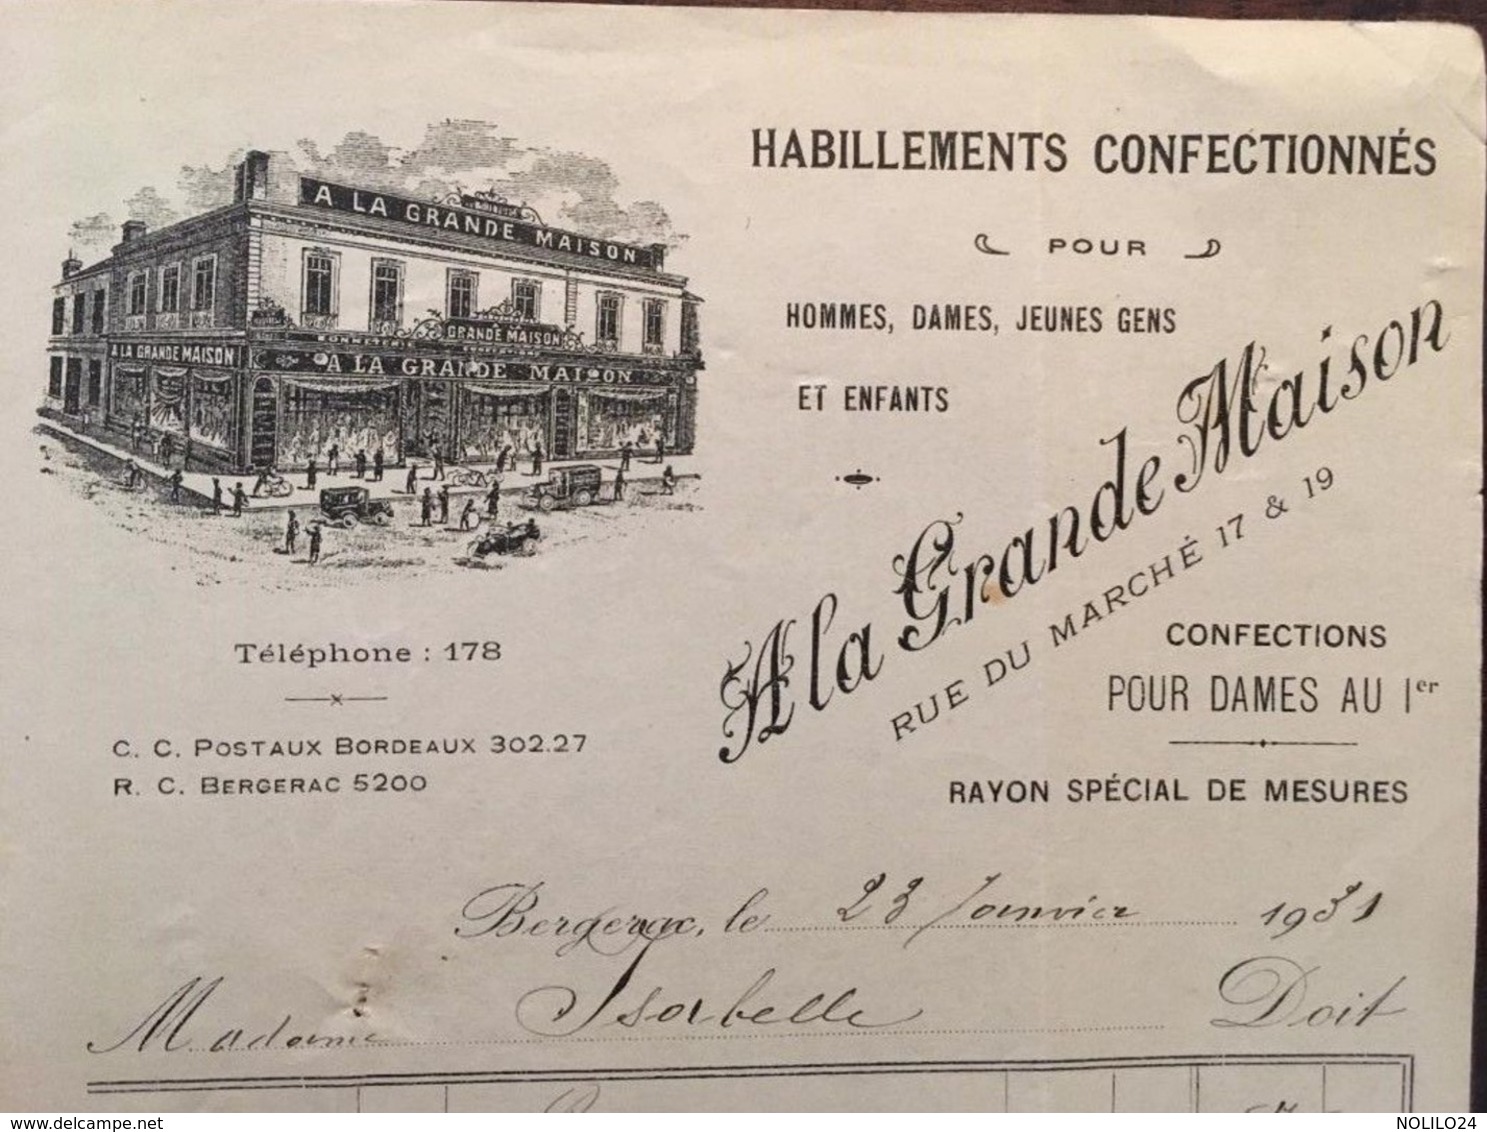 A LA GRANDE MAISON
GRANDE MAISON
BONNETERIE
A LA GRANDE MAISON
A LA GRANDE MAISON
Téléphone : 178
C. C. POSTAUX BORDEAUX 302.27
R. C. BERGERAC 5200
HABILLEMENTS CONFECTIONNÉS
POUR
HOMMES, DAMES, JEUNES GENS
ET ENFANTS
A la Grande Maison
RUE DU MARCHÉ 17 & 19
CONFECTIONS
POUR DAMES AU 1er
RAYON SPÉCIAL DE MESURES
Bergerac, le 23 Janvier 1931
Madame Isabelle Doit
www.delcampe.net
NOLILO24